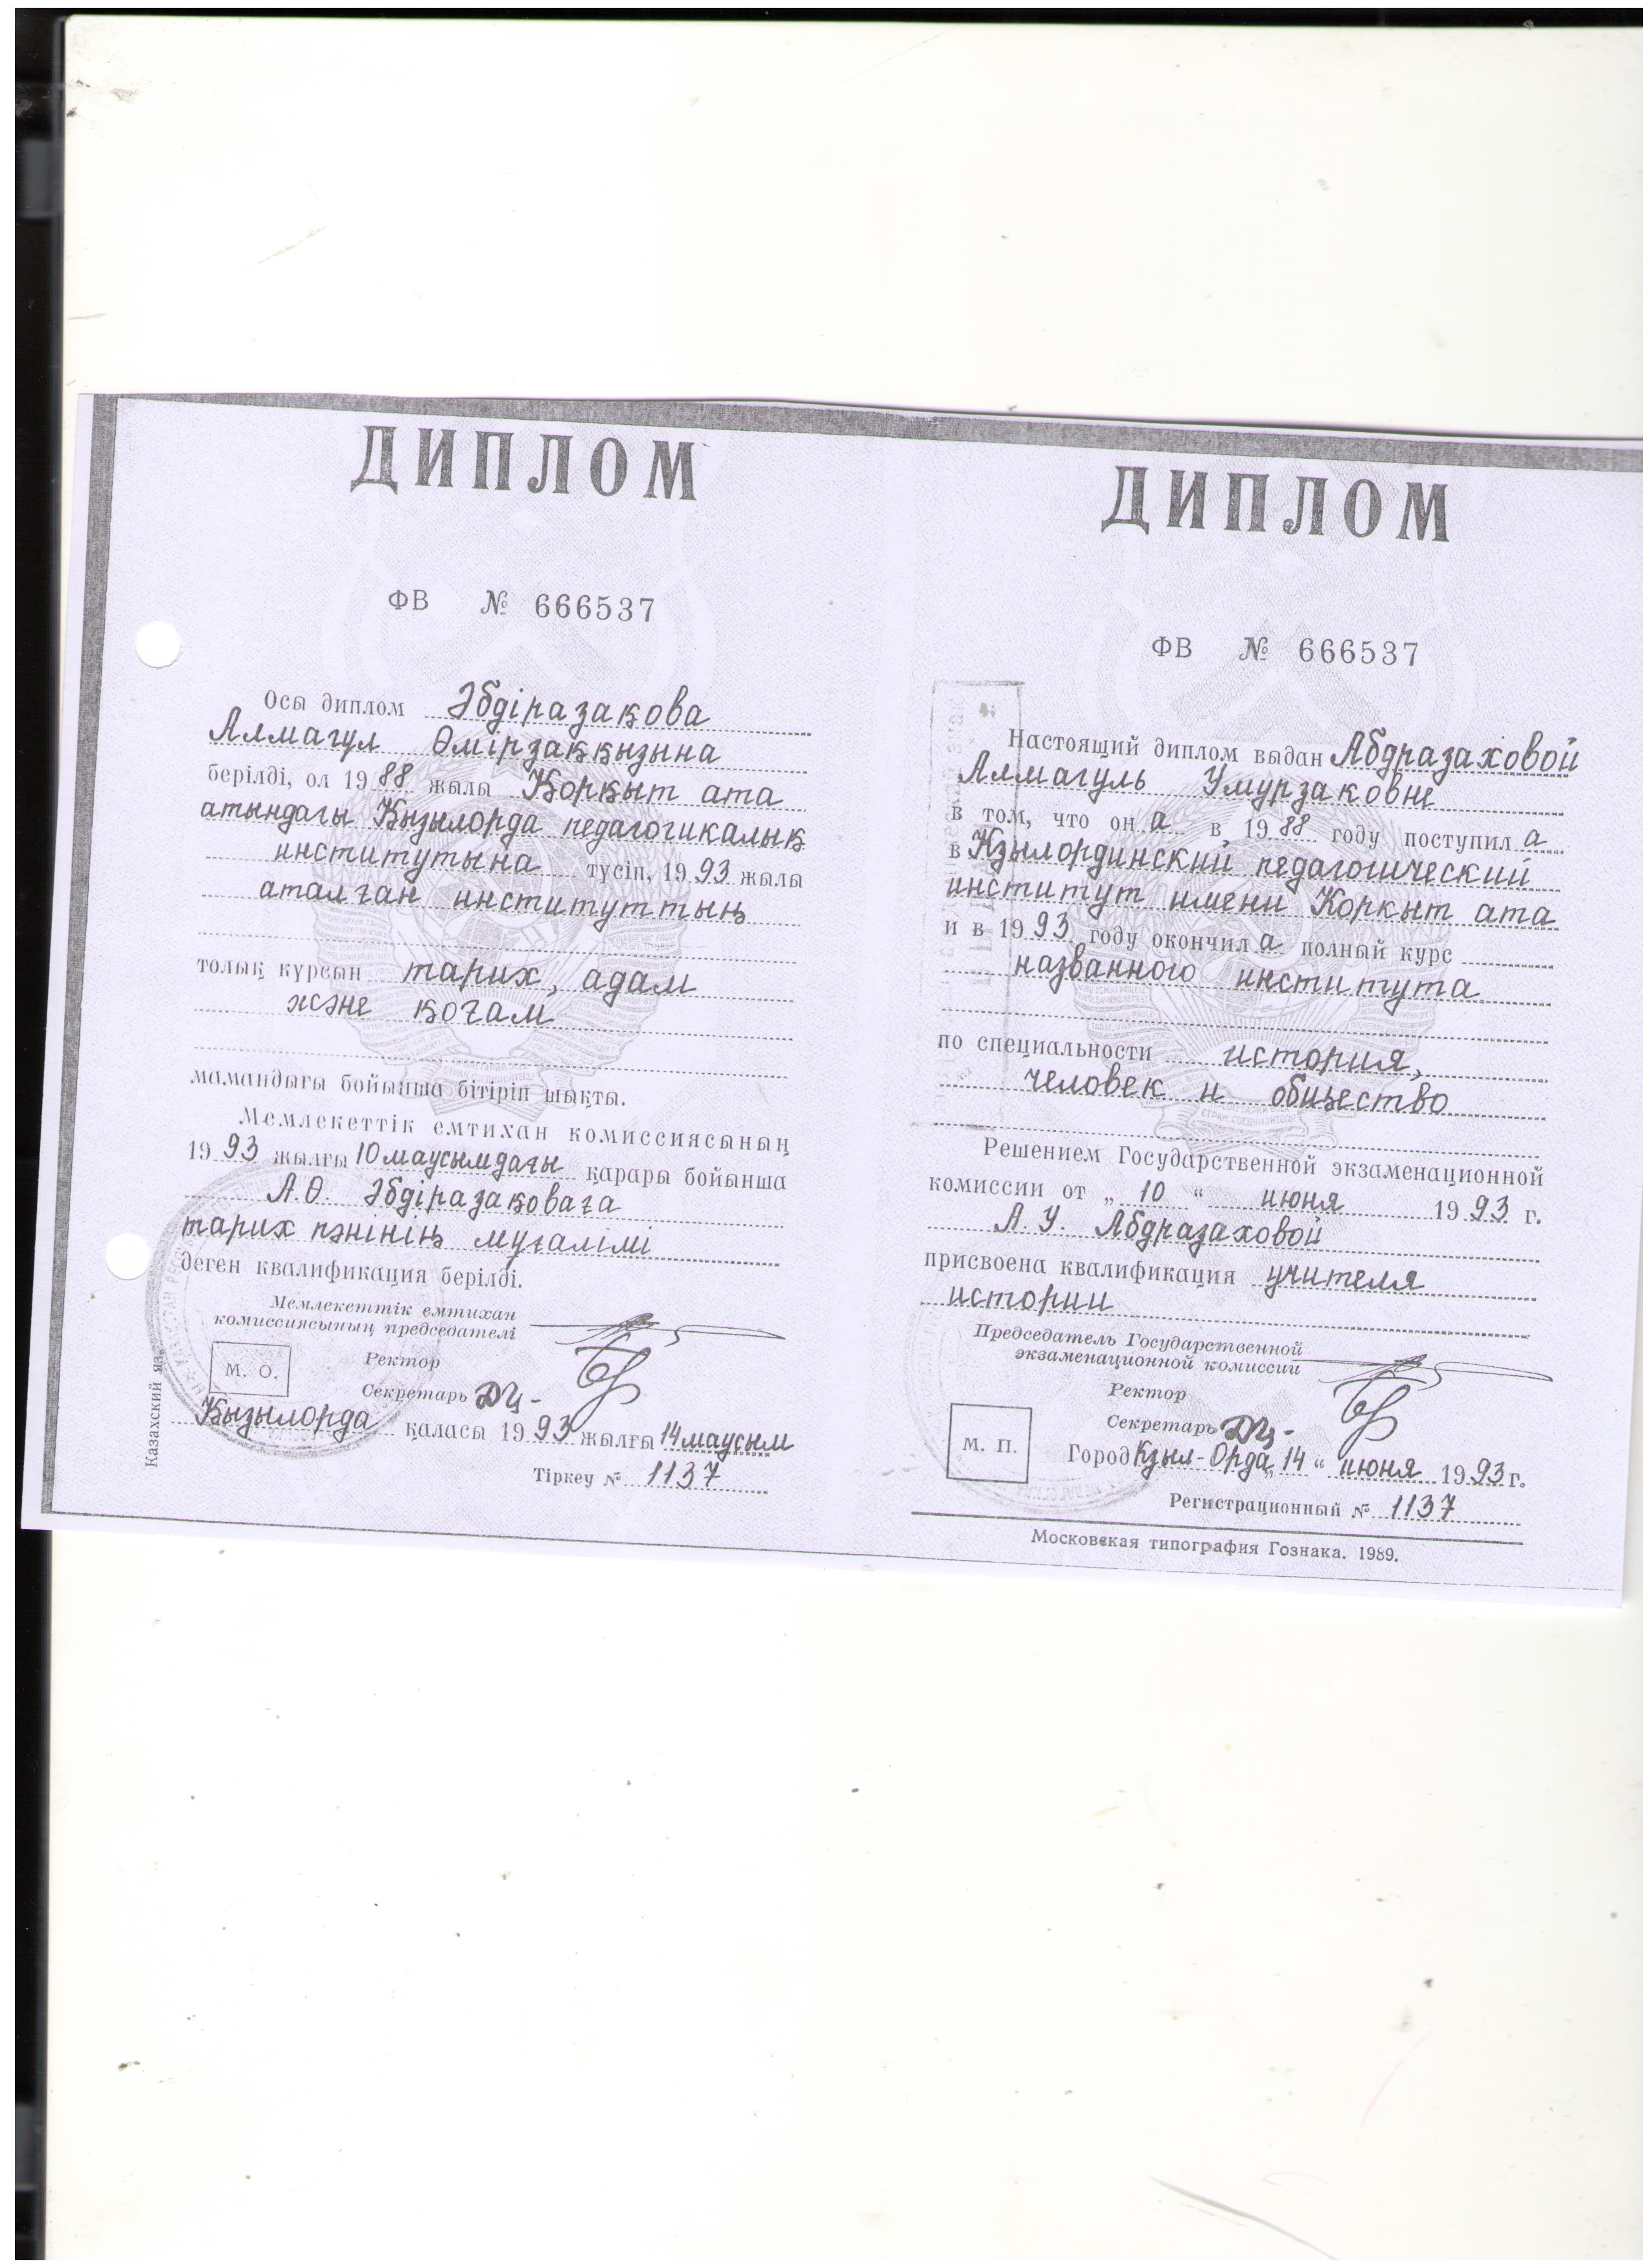 ДИПЛОМ
ФВ № 666537
Осы диплом Әбдіразақова
Алмагүл Өмірзаққызына
берілді, ол 1988 жылы Қорқыт ата
атындағы Қызылорда педагогикалық
институтына түсіп, 1993 жылы
аталған институттың
толық курсын тарих, адам
және қоғам
мамандығы бойынша бітіріп шықты.
Мемлекеттік емтихан комиссиясының
1993 жылғы 10 маусымдағы қарары бойынша
А.Ө. Әбдіразақоваға
тарих пәнінің мұғалімі
деген квалификация берілді.
Мемлекеттік емтихан
комиссиясының председателі
Ректор
М. О.
Секретарь
Қызылорда қаласы 1993 жылғы 14 маусым
Тіркеу № 1137
Казахский яз.
ДИПЛОМ
ФВ № 666537
Настоящий диплом выдан Абдразаховой
Алмагуль Умурзаковне
в том, что он а в 1988 году поступил а
в Кзылординский педагогический
институт имени Коркыт ата
и в 1993 году окончил а полный курс
названного института
по специальности история,
человек и общество
Решением Государственной экзаменационной
комиссии от „ 10 “ июня 1993 г.
А. У. Абдразаховой
присвоена квалификация учителя
истории
Председатель Государственной
экзаменационной комиссии
Ректор
Секретарь
М. П.
Город Кзыл-Орда, „14“ июня 1993 г.
Регистрационный № 1137
Московская типография Гознака. 1989.